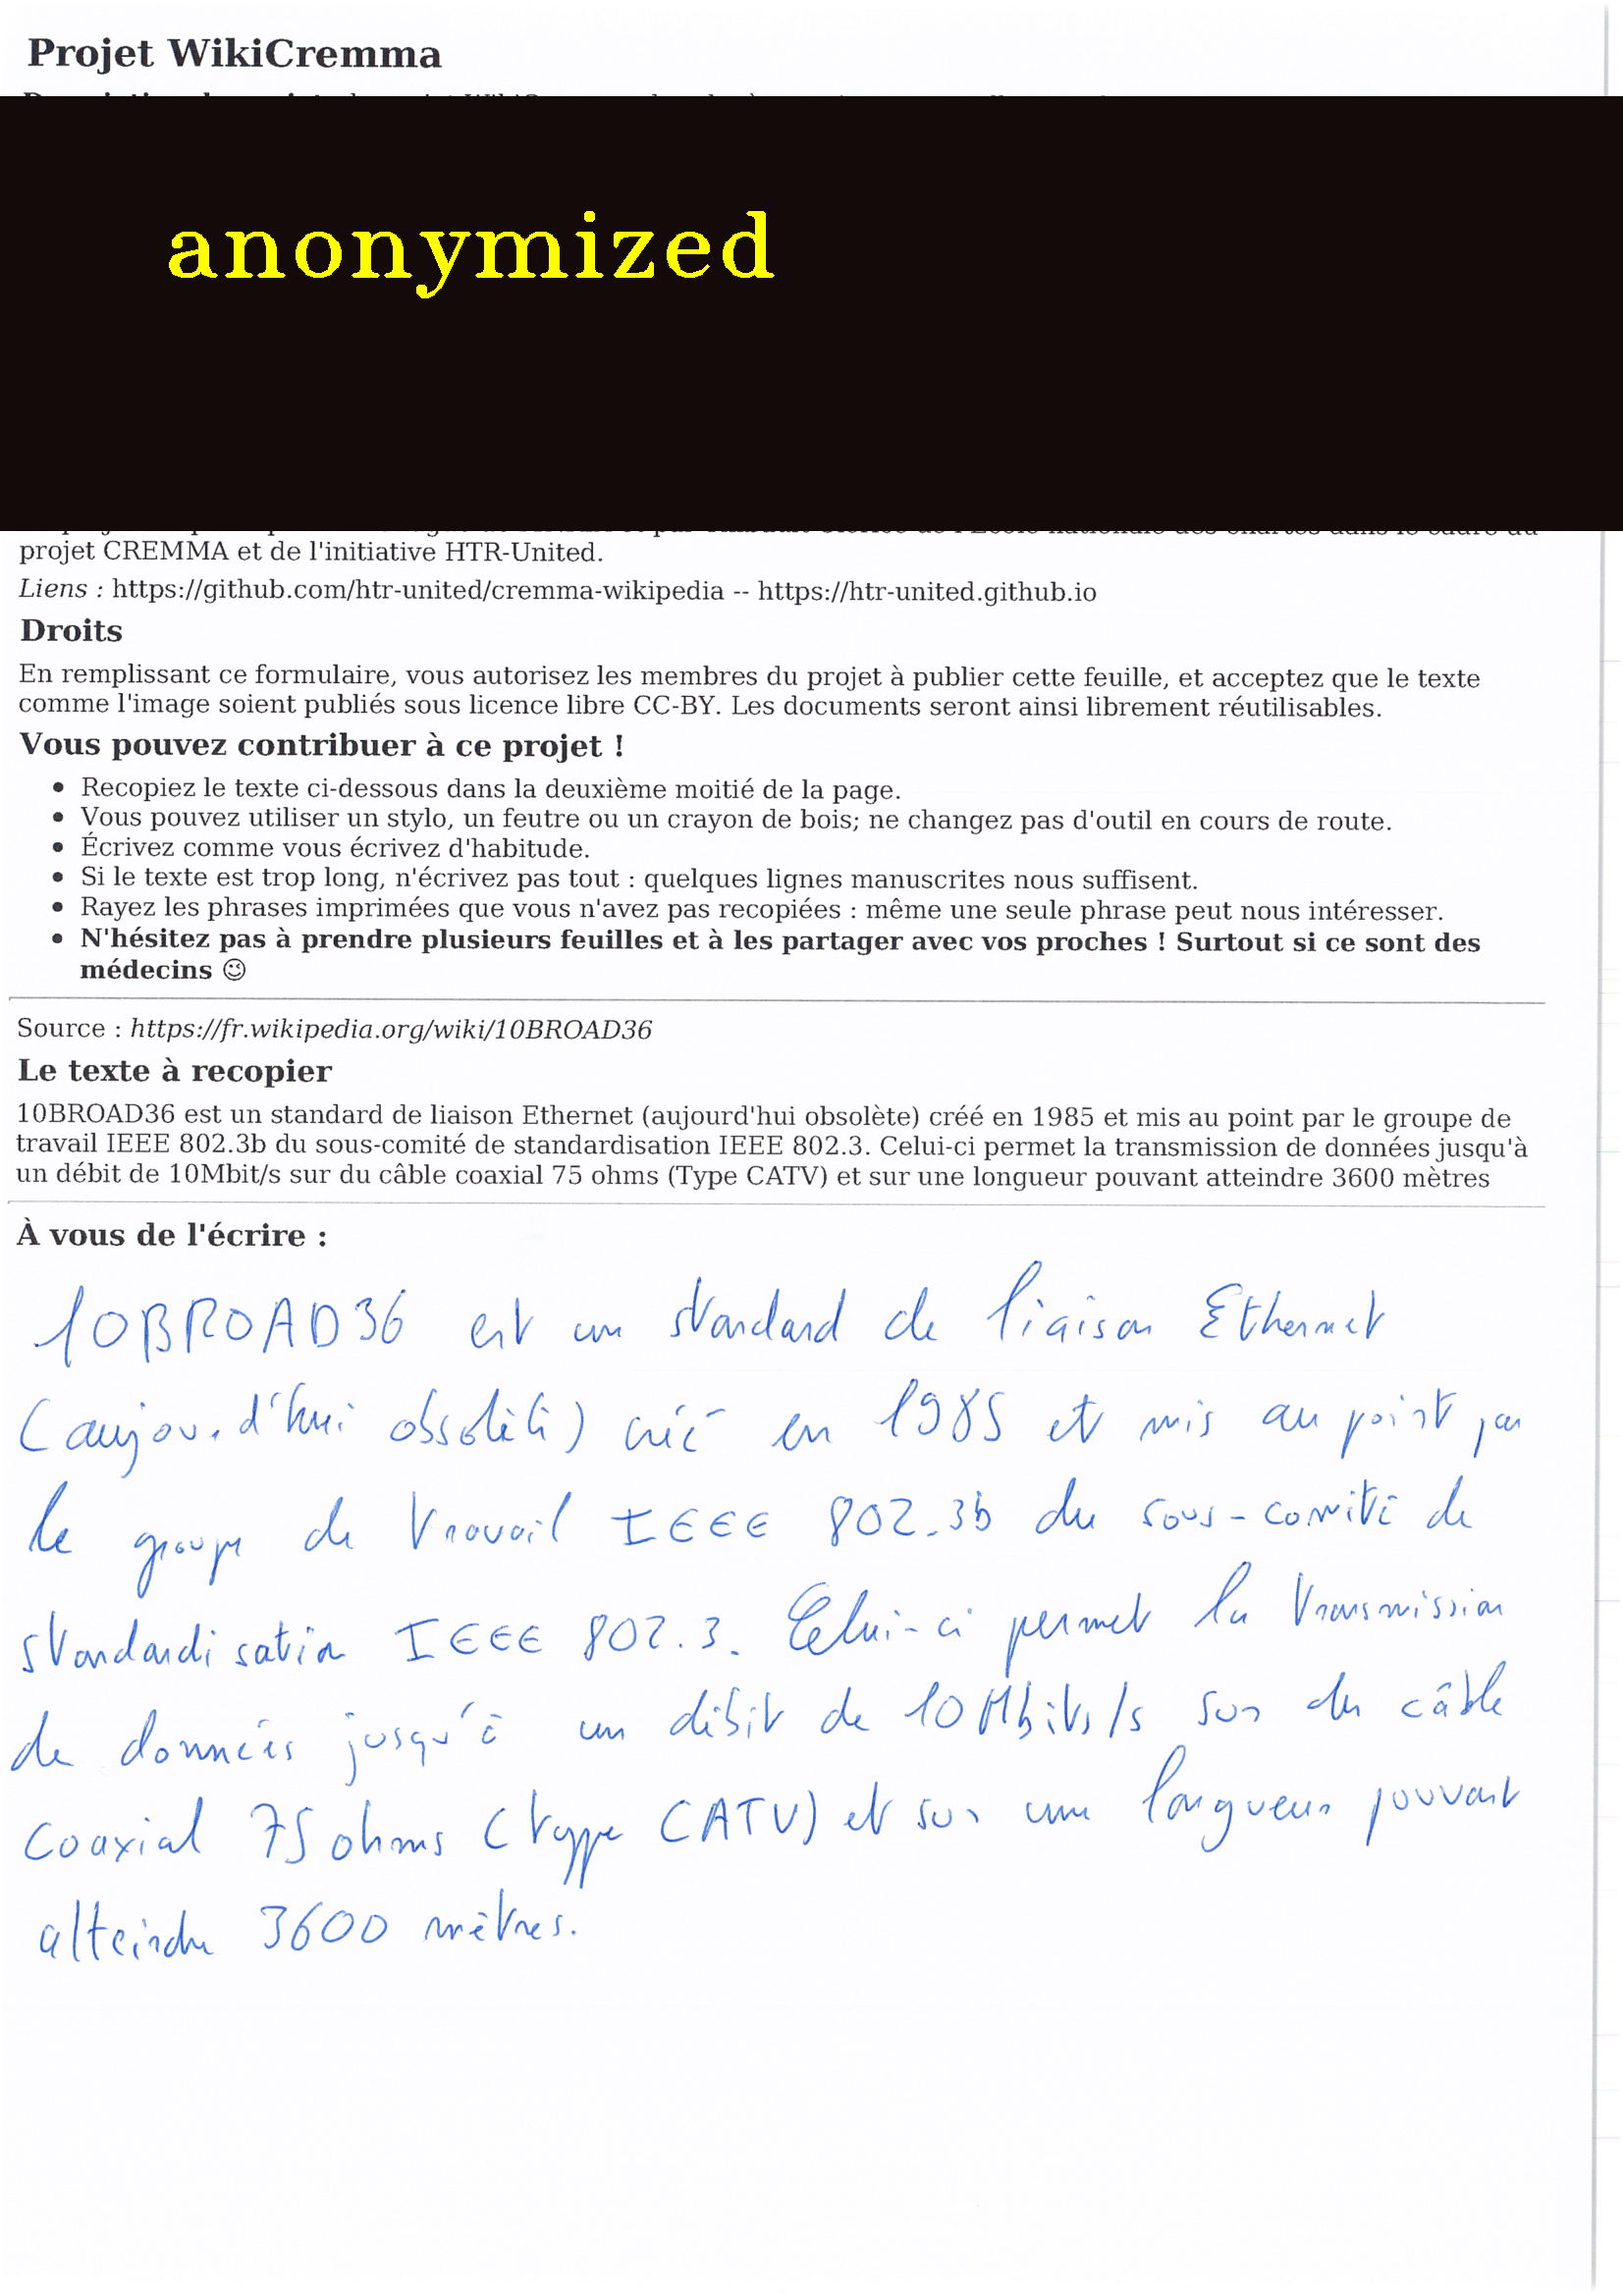 Projet WikiCremma
anonymized
projet CREMMA et de l'initiative HTR-United.
Liens : https://github.com/htr-united/cremma-wikipedia -- https://htr-united.github.io
Droits
En remplissant ce formulaire, vous autorisez les membres du projet à publier cette feuille, et acceptez que le texte
comme l'image soient publiés sous licence libre CC-BY. Les documents seront ainsi librement réutilisables.
Vous pouvez contribuer à ce projet !
• Recopiez le texte ci-dessous dans la deuxième moitié de la page.
• Vous pouvez utiliser un stylo, un feutre ou un crayon de bois; ne changez pas d'outil en cours de route.
• Écrivez comme vous écrivez d'habitude.
• Si le texte est trop long, n'écrivez pas tout : quelques lignes manuscrites nous suffisent.
• Rayez les phrases imprimées que vous n'avez pas recopiées : même une seule phrase peut nous intéresser.
• N'hésitez pas à prendre plusieurs feuilles et à les partager avec vos proches ! Surtout si ce sont des
médecins 😉
Source : https://fr.wikipedia.org/wiki/10BROAD36
Le texte à recopier
10BROAD36 est un standard de liaison Ethernet (aujourd'hui obsolète) créé en 1985 et mis au point par le groupe de
travail IEEE 802.3b du sous-comité de standardisation IEEE 802.3. Celui-ci permet la transmission de données jusqu'à
un débit de 10Mbit/s sur du câble coaxial 75 ohms (Type CATV) et sur une longueur pouvant atteindre 3600 mètres
À vous de l'écrire :
10BROAD36 est un standard de liaison Ethernet
(aujourd'hui obsolète) créé en 1985 et mis au point par
le groupe de travail IEEE 802.3b du sous-comité de
standardisation IEEE 802.3. Celui-ci permet la transmission
de données jusqu'à un débit de 10Mbits/s sur du câble
coaxial 75 ohms (type CATV) et sur une longueur pouvant
atteindre 3600 mètres.